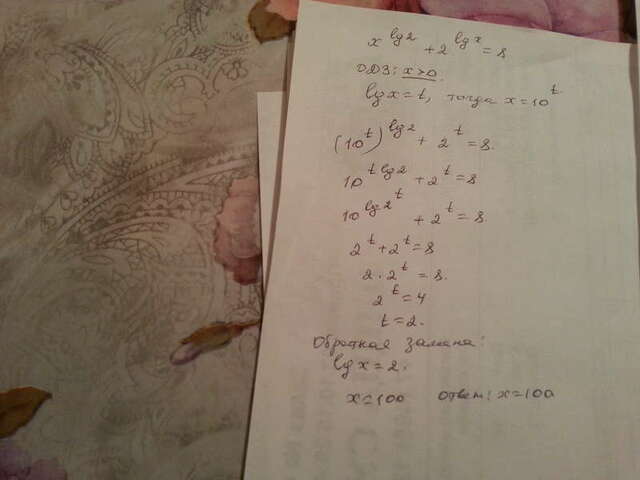 x^lg2 + 2^lgx = 8
ОДЗ: x>0.
lg x = t, тогда x = 10^t.
(10^t)^lg2 + 2^t = 8.
10^t lg2 + 2^t = 8
10^lg2^t + 2^t = 8.
2^t + 2^t = 8
2 · 2^t = 8.
2^t = 4
t = 2.
Обратная замена:
lg x = 2.
x = 100 Ответ: x = 100